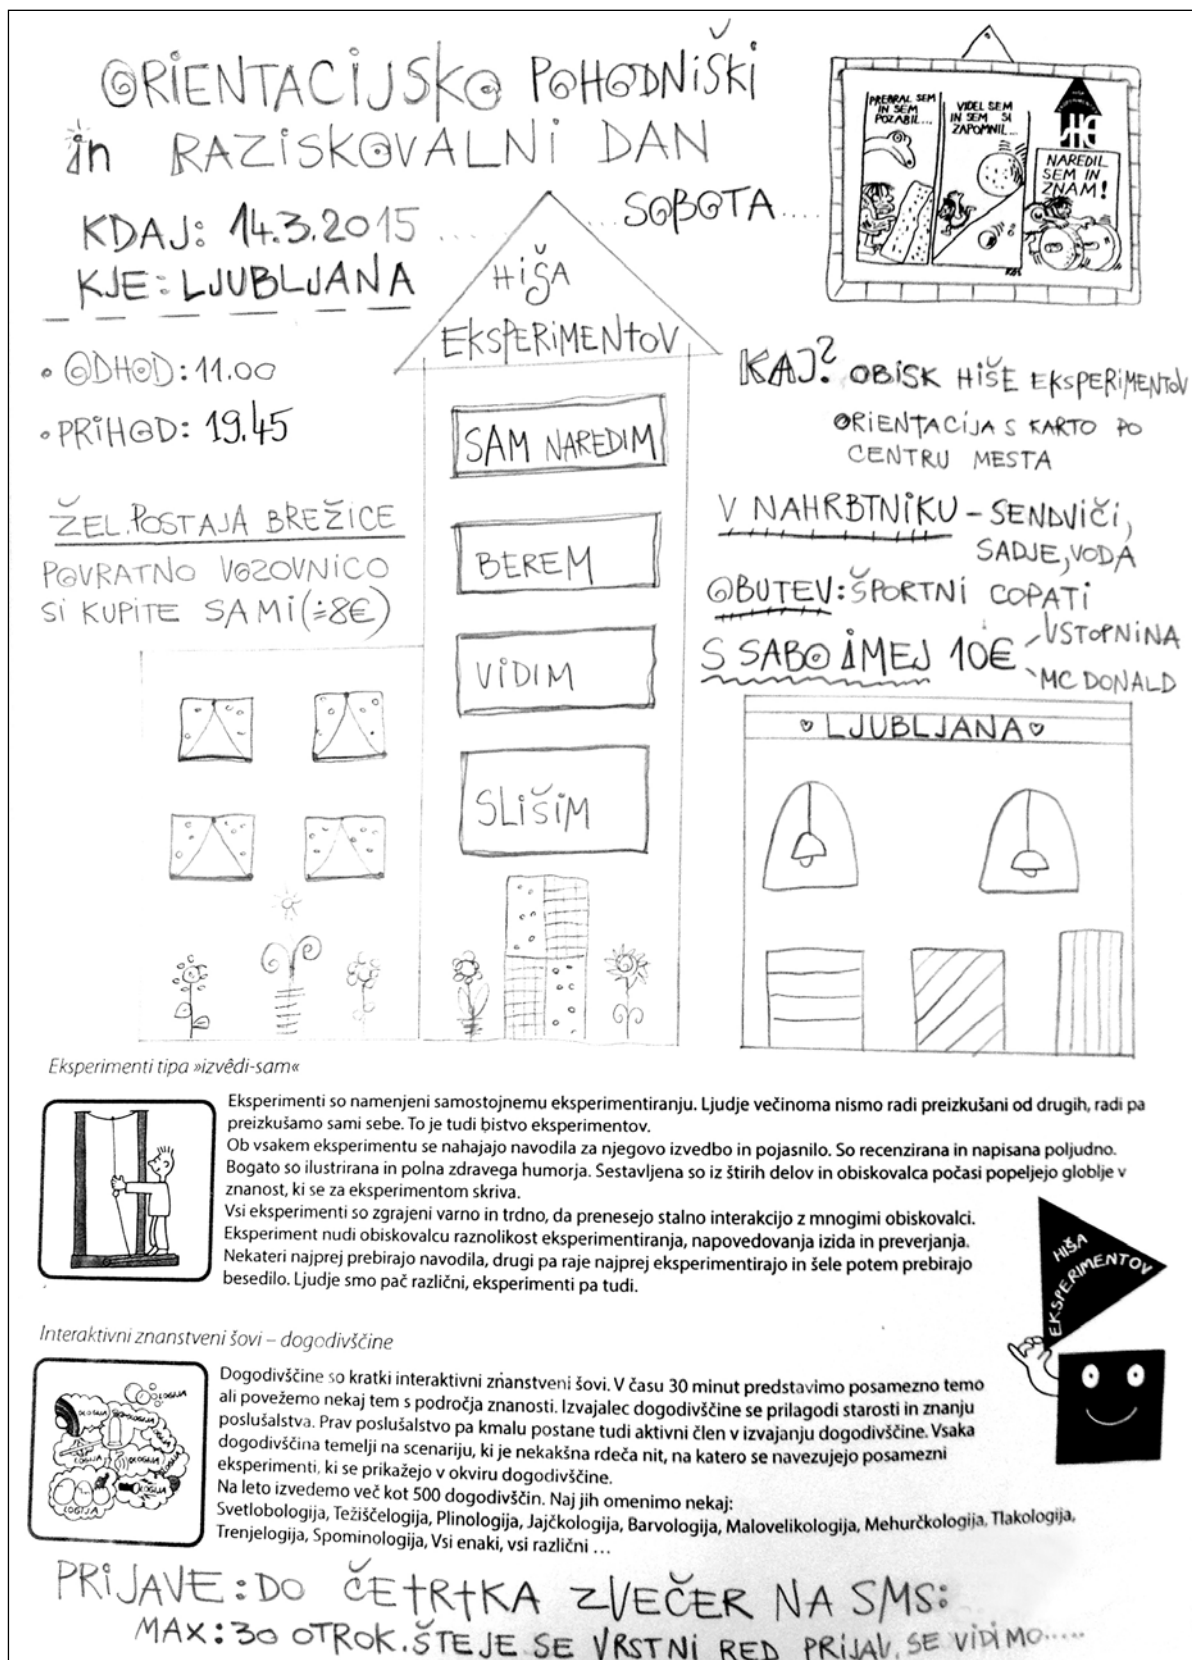 ORIENTACIJSKO POHODNIŠKI
in RAZISKOVALNI DAN
KDAJ: 14.3.2015 .... SOBOTA.....
KJE: LJUBLJANA
PREBRAL SEM
IN SEM
POZABIL...
VIDEL SEM
IN SEM SI
ZAPOMNIL...
HE
NAREDIL
SEM IN
ZNAM!
• ODHOD: 11.00
• PRIHOD: 19.45
ŽEL. POSTAJA BREŽICE
POVRATNO VOZOVNICO
SI KUPITE SAMI (≐8€)
HIŠA
EKSPERIMENTOV
SAM NAREDIM
BEREM
VIDIM
SLIŠIM
KAJ? OBISK HIŠE EKSPERIMENTOV
ORIENTACIJA S KARTO PO
CENTRU MESTA
V NAHRBTNIKU – SENDVIČI,
SADJE, VODA
OBUTEV: ŠPORTNI COPATI
S SABO IMEJ 10€
VSTOPNINA
MC DONALD
♡ LJUBLJANA ♡
Eksperimenti tipa »izvêdi-sam«
Eksperimenti so namenjeni samostojnemu eksperimentiranju. Ljudje večinoma nismo radi preizkušani od drugih, radi pa
preizkušamo sami sebe. To je tudi bistvo eksperimentov.
Ob vsakem eksperimentu se nahajajo navodila za njegovo izvedbo in pojasnilo. So recenzirana in napisana poljudno.
Bogato so ilustrirana in polna zdravega humorja. Sestavljena so iz štirih delov in obiskovalca počasi popeljejo globlje v
znanost, ki se za eksperimentom skriva.
Vsi eksperimenti so zgrajeni varno in trdno, da prenesejo stalno interakcijo z mnogimi obiskovalci.
Eksperiment nudi obiskovalcu raznolikost eksperimentiranja, napovedovanja izida in preverjanja.
Nekateri najprej prebirajo navodila, drugi pa raje najprej eksperimentirajo in šele potem prebirajo
besedilo. Ljudje smo pač različni, eksperimenti pa tudi.
HIŠA
EKSPERIMENTOV
Interaktivni znanstveni šovi – dogodivščine
Dogodivščine so kratki interaktivni znanstveni šovi. V času 30 minut predstavimo posamezno temo
ali povežemo nekaj tem s področja znanosti. Izvajalec dogodivščine se prilagodi starosti in znanju
poslušalstva. Prav poslušalstvo pa kmalu postane tudi aktivni člen v izvajanju dogodivščine. Vsaka
dogodivščina temelji na scenariju, ki je nekakšna rdeča nit, na katero se navezujejo posamezni
eksperimenti, ki se prikažejo v okviru dogodivščine.
Na leto izvedemo več kot 500 dogodivščin. Naj jih omenimo nekaj:
Svetlobologija, Težiščelogija, Plinologija, Jajčkologija, Barvologija, Malovelikologija, Mehurčkologija, Tlakologija,
Trenjelogija, Spominologija, Vsi enaki, vsi različni ...
PRIJAVE: DO ČETRTKA ZVEČER NA SMS:
MAX: 30 OTROK. ŠTEJE SE VRSTNI RED PRIJAV. SE VIDIMO.....